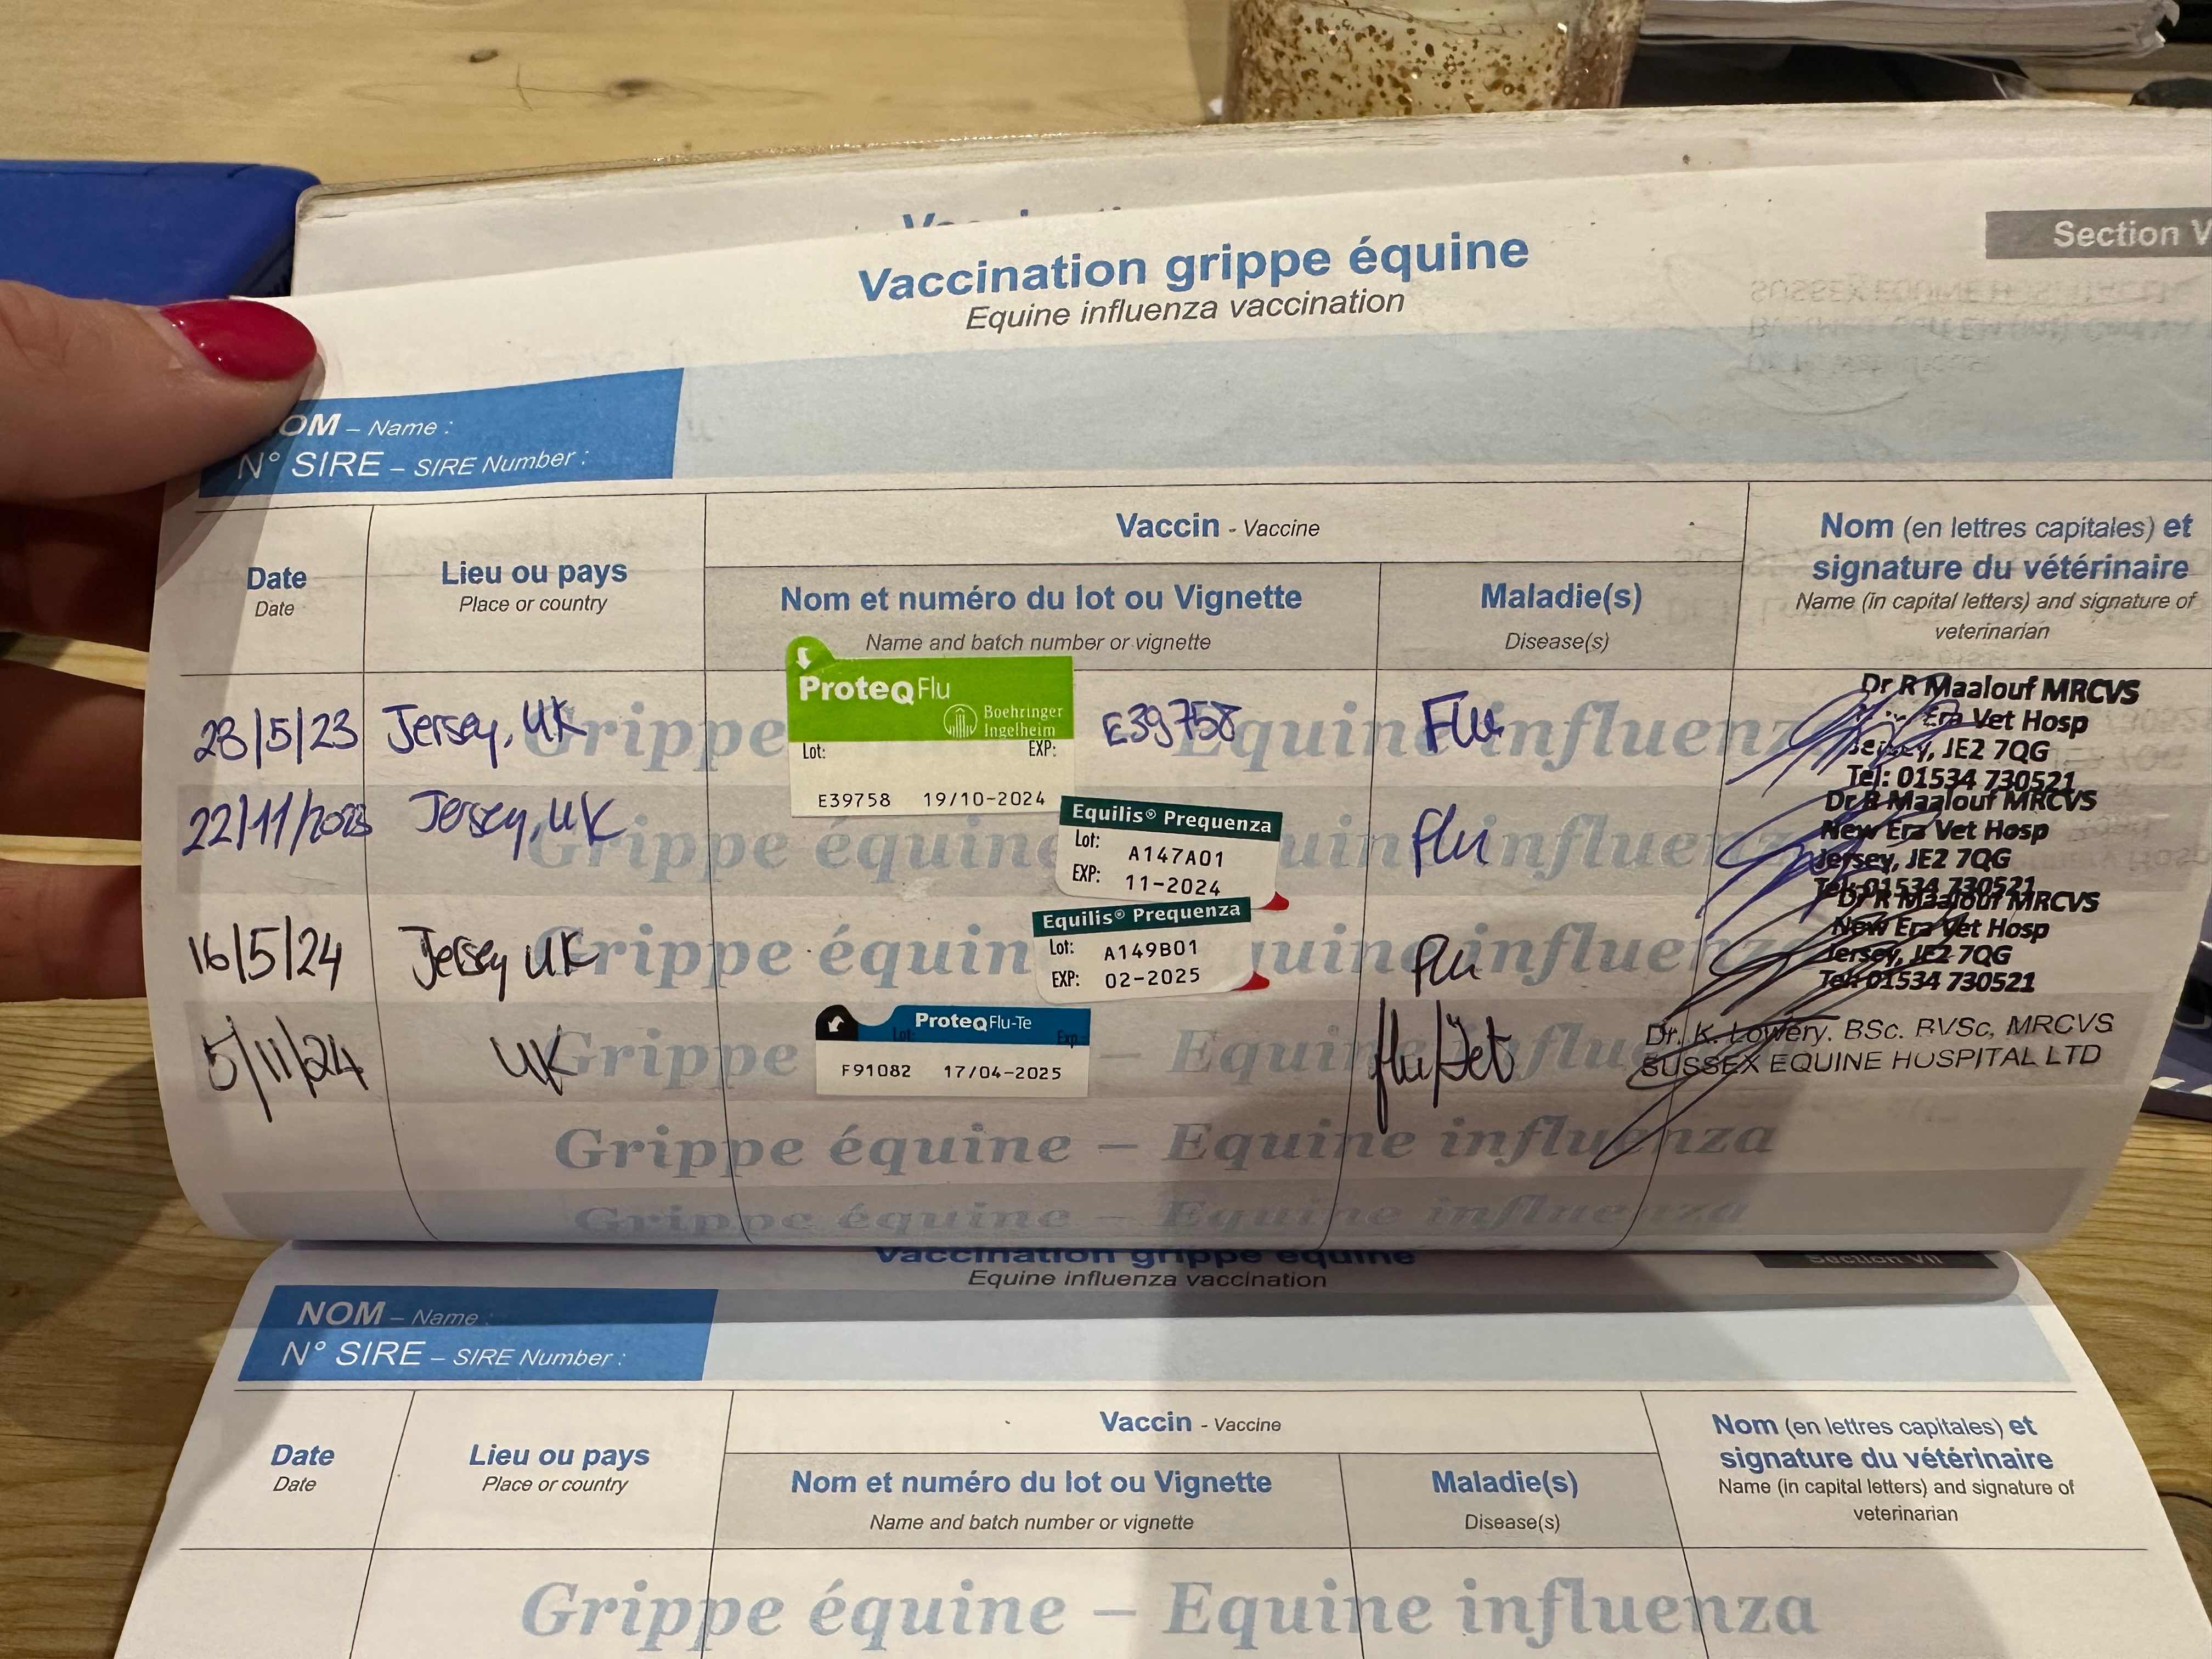 Vaccination grippe équine
Equine influenza vaccination
Section V
OM – Name :
N° SIRE – SIRE Number :
Date
Date
Lieu ou pays
Place or country
Vaccin - Vaccine
Nom et numéro du lot ou Vignette
Name and batch number or vignette
Maladie(s)
Disease(s)
Nom (en lettres capitales) et
signature du vétérinaire
Name (in capital letters) and signature of
veterinarian
23/5/23 Jersey, UK
ProteqFlu
Boehringer
Ingelheim
Lot: EXP:
E39758 19/10-2024
E39758
Flu
Dr R Maalouf MRCVS
Era Vet Hosp
Jersey, JE2 7QG
Tel: 01534 730521
22/11/2023 Jersey, UK
Equilis® Prequenza
Lot: A147A01
EXP: 11-2024
flu
Dr R Maalouf MRCVS
New Era Vet Hosp
Jersey, JE2 7QG
Tel: 01534 730521
16/5/24 Jersey UK
Equilis® Prequenza
Lot: A149B01
EXP: 02-2025
flu
Dr R Maalouf MRCVS
New Era Vet Hosp
Jersey, JE2 7QG
Tel: 01534 730521
5/11/24 UK
ProteqFlu-Te
Lot: Exp:
F91082 17/04-2025
flu/tet
Dr. K. Lowery. BSc. BVSc, MRCVS
SUSSEX EQUINE HOSPITAL LTD
Grippe équine – Equine influenza
Grippe équine – Equine influenza
Vaccination grippe équine
Equine influenza vaccination
Section VII
NOM – Name :
N° SIRE – SIRE Number :
Date
Date
Lieu ou pays
Place or country
Vaccin - Vaccine
Nom et numéro du lot ou Vignette
Name and batch number or vignette
Maladie(s)
Disease(s)
Nom (en lettres capitales) et
signature du vétérinaire
Name (in capital letters) and signature of
veterinarian
Grippe équine – Equine influenza